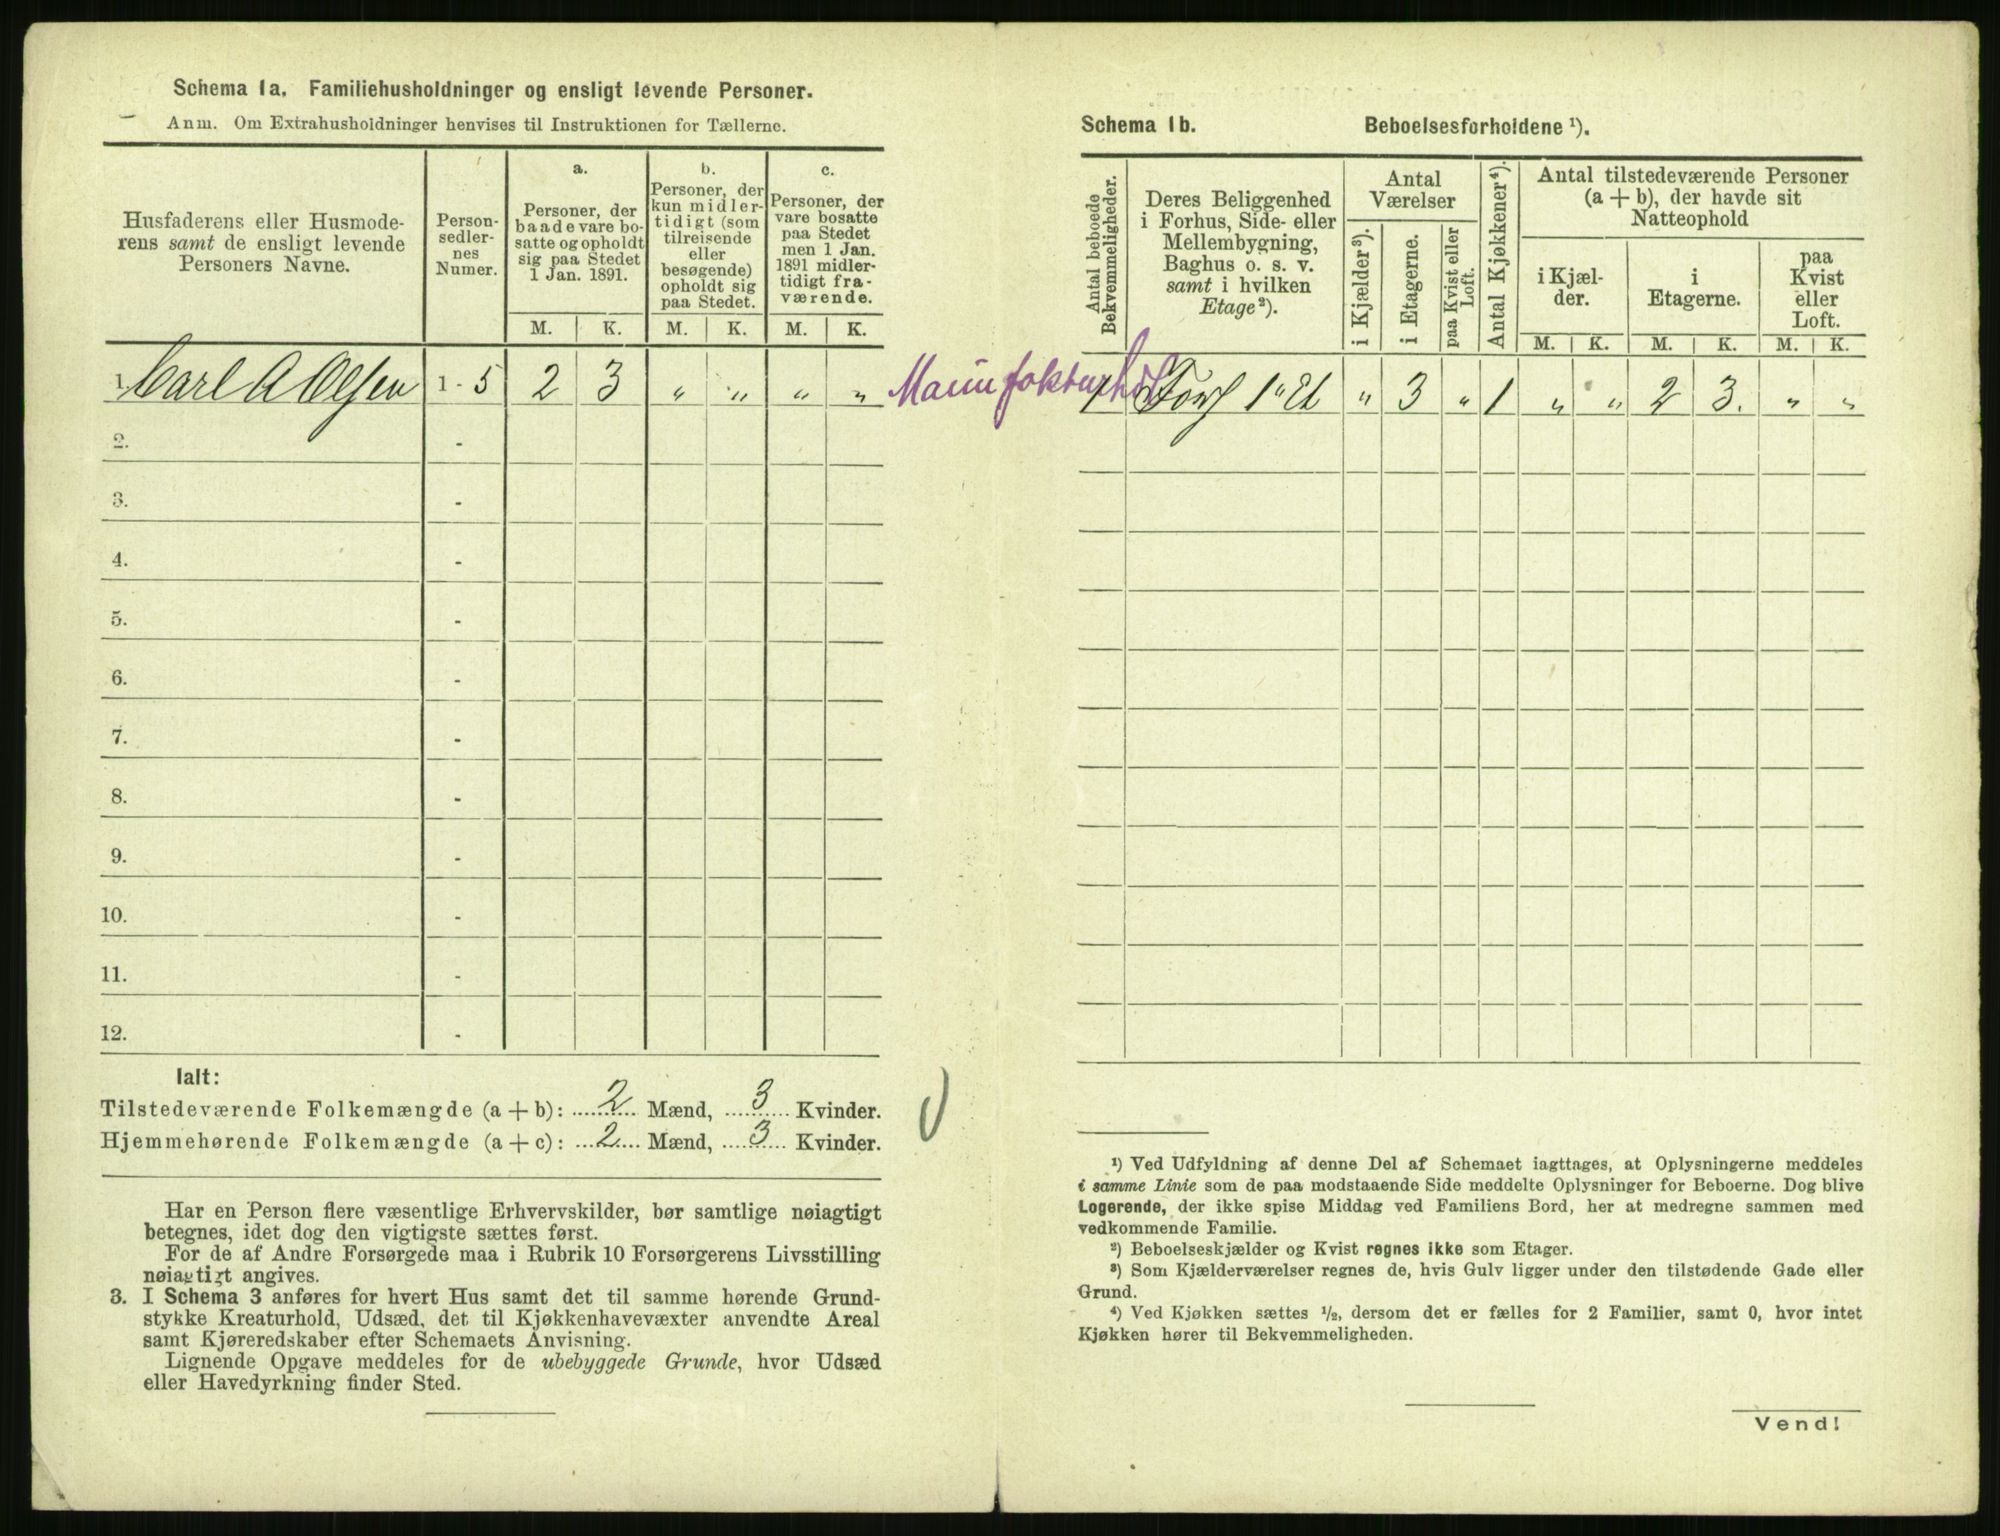 Schema 1a. Familiehusholdninger og ensligt levende Personer.
Anm. Om Extrahusholdninger henvises til Instruktionen for Tællerne.
Husfaderens eller Husmode-
rens samt de ensligt levende
Personers Navne.
Person-
sedler-
nes
Numer.
a.
Personer, der
baade vare bo-
satte og opholdt
sig paa Stedet
1 Jan. 1891.
b.
Personer, der
kun midler-
tidigt (som
tilreisende
eller
besøgende)
opholdt sig
paa Stedet.
c.
Personer, der
vare bosatte
paa Stedet
men 1 Jan.
1891 midler-
tidigt fra-
værende.
M. K. M. K. M. K.
1 Carl A Olsen 1 - 5 2 3 „ „ „ „
2. -
3. -
4. -
5. -
6. -
7. -
8. -
9. -
10. -
11. -
12. -
Ialt:
Tilstedeværende Folkemængde (a + b): 2 Mænd, 3 Kvinder.
Hjemmehørende Folkemængde (a + c): 2 Mænd, 3 Kvinder.
Har en Person flere væsentlige Erhvervskilder, bør samtlige nøiagtigt
betegnes, idet dog den vigtigste sættes først.
For de af Andre Forsørgede maa i Rubrik 10 Forsørgerens Livsstilling
nøiagtigt angives.
3. I Schema 3 anføres for hvert Hus samt det til samme hørende Grund-
stykke Kreaturhold, Udsæd, det til Kjøkkenhavevæxter anvendte Areal
samt Kjøreredskaber efter Schemaets Anvisning.
Lignende Opgave meddeles for de ubebyggede Grunde, hvor Udsæd
eller Havedyrkning finder Sted.
Schema 1b. Beboelsesforholdene ¹).
Antal beboede
Bekvemmeligheder.
Deres Beliggenhed
i Forhus, Side- eller
Mellembygning,
Baghus o. s. v.
samt i hvilken
Etage²).
Antal
Værelser
i Kjælder³).
i Etagerne.
paa Kvist eller
Loft.
Antal Kjøkkener⁴).
Antal tilstedeværende Personer
(a + b), der havde sit
Natteophold
i Kjæl-
der.
i
Etagerne.
paa
Kvist
eller
Loft.
M. K. M. K. M. K.
1 Forh 1ᵘ Et „ 3 „ 1 „ „ 2 3. „ „
¹) Ved Udfyldning af denne Del af Schemaet iagttages, at Oplysningerne meddeles
i samme Linie som de paa modstaaende Side meddelte Oplysninger for Beboerne. Dog blive
Logerende, der ikke spise Middag ved Familiens Bord, her at medregne sammen med
vedkommende Familie.
²) Beboelseskjælder og Kvist regnes ikke som Etager.
³) Som Kjælderværelser regnes de, hvis Gulv ligger under den tilstødende Gade eller
Grund.
⁴) Ved Kjøkken sættes ½, dersom det er fælles for 2 Familier, samt 0, hvor intet
Kjøkken hører til Bekvemmeligheden.
Vend!